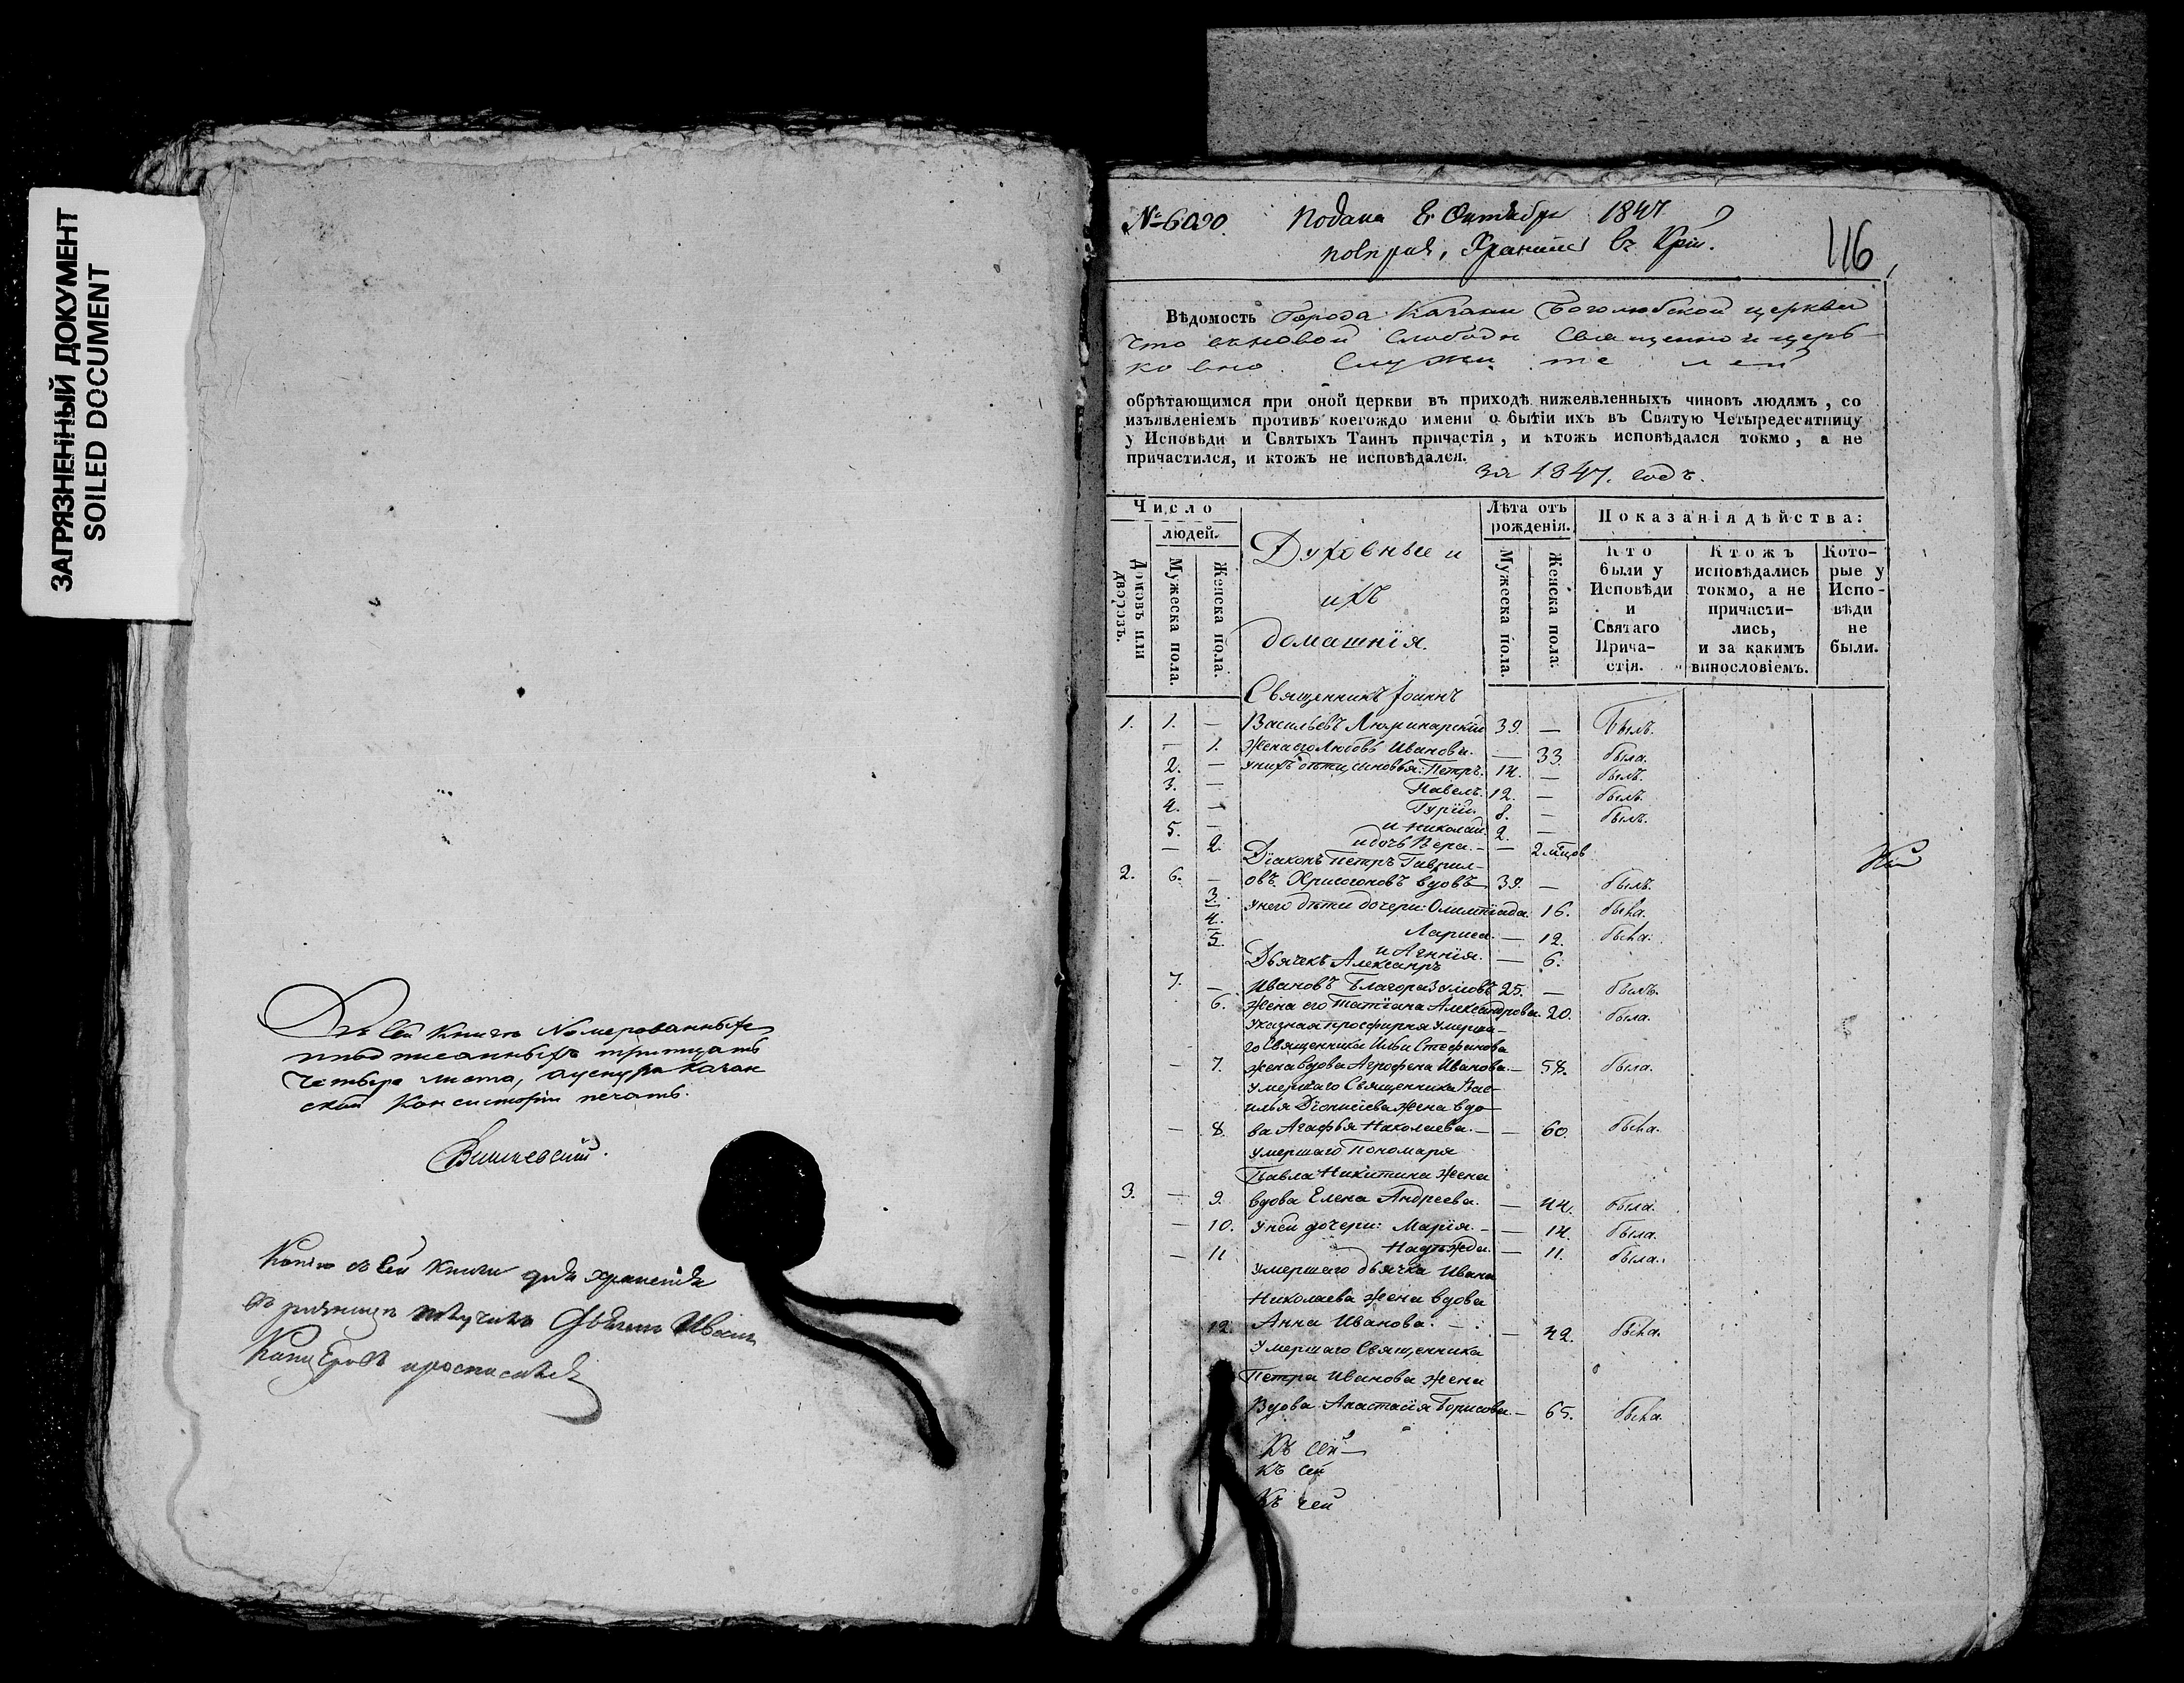 ЗАГРЯЗНЕННЫЙ ДОКУМЕНТ
SOILED DOCUMENT
сей книгѣ Номерованныхъ
тритцать
четыре листа, Казан
ской Консисторіи печать.
Вишневский.
Копію съ сей книги для храненія
въ получилъ Иванъ
№ 6090. Подана 8 Октября 1847
116
Вѣдомость Города Казани Боголюбской церкви
что въ новой Слободѣ Священно и церь
ковно служителей
обрѣтающимся при оной церкви въ приходѣ нижеявленныхъ чиновъ людямъ, со
изъявленіемъ противъ коегождо имени о бытіи ихъ въ Святую Четыредесятницу
у Исповѣди и Святыхъ Таинъ причастія, и ктожъ исповѣдался токмо, а не
причастился, и ктожъ не исповѣдался.
за 1847. годъ.
Число
людей.
Домовъ или дворовъ.
Мужеска пола.
Женска пола.
Духовные и
ихъ
домашнія.
Лѣта отъ рожденія.
Мужеска пола
Женска пола.
Показанія дѣйства:
Кто были у Исповѣди и Святаго Причастія.
Ктожъ исповѣдались токмо, а не причастились, и за какимъ винословіемъ.
Которые у Исповѣди не были.
Священникъ Іоаннъ
1. 1. — Васильевъ Люминарскій 39. — Былъ.
— 1. жена его Любовь Иванова. — 33. была.
2. — у нихъ дѣти, сыновья: Петръ. 14. — былъ.
3. — Павелъ. 12. — былъ.
4. — Гурій. 8. — былъ.
5. — и Николай. 2. —
— 2. и дочь Вера. — 2 мѣцов
Діаконъ Петръ Гаврил-
2. 6. — овъ Хрисогоновъ вдовъ 39. — былъ.
3. у него дѣти дочери: Олимпіада. 16. была.
4. Лариса. — 12. была.
5. и Агнія. — 6.
Дьячекъ Александръ
7. — Ивановъ Благоразумовъ 25. — былъ.
6. жена его Татіана Александрова. 20. была.
Указная просфирня умерша-
го Священника Ильи Стефанова
— 7. жена вдова Агрофена Иванова. — 58. была.
умершаго Священника Вас-
илья Діонисіева жена вдо-
— 8. ва Агафья Николаева. — 60. была.
умершаго Пономаря
Павла Никитина жена
3. — 9. вдова Елена Андреева. — 44. была.
— 10. у ней дочери: Марія. — 14. была.
— 11 Надѣжда. — 11. была.
Умершаго дьячка Ивана
Николаева жена вдова
12. Анна Иванова. — 42. была.
Умершаго Священника
Петра Иванова жена
Вдова Анастасія Борисова. — 65. была.
Къ сей
къ сей
Къ сей